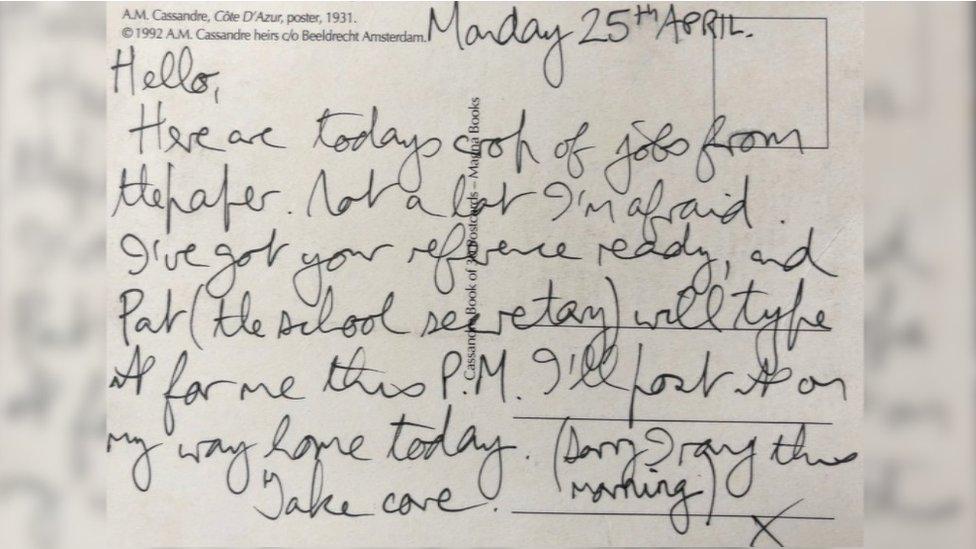 A.M. Cassandre, Côte D'Azur, poster, 1931.
© 1992 A.M. Cassandre heirs c/o Beeldrecht Amsterdam.
Monday 25th APRIL.
Hello,
Here are todays crop of jobs from
the paper. Not a lot I'm afraid.
I've got your reference ready, and
Pat (the school secretary) will type
it for me this P.M. I'll post it on
my way home today. (Sorry I rang this
morning)
Take care.
X
Cassandre Book of 30 Postcards – Magna Books